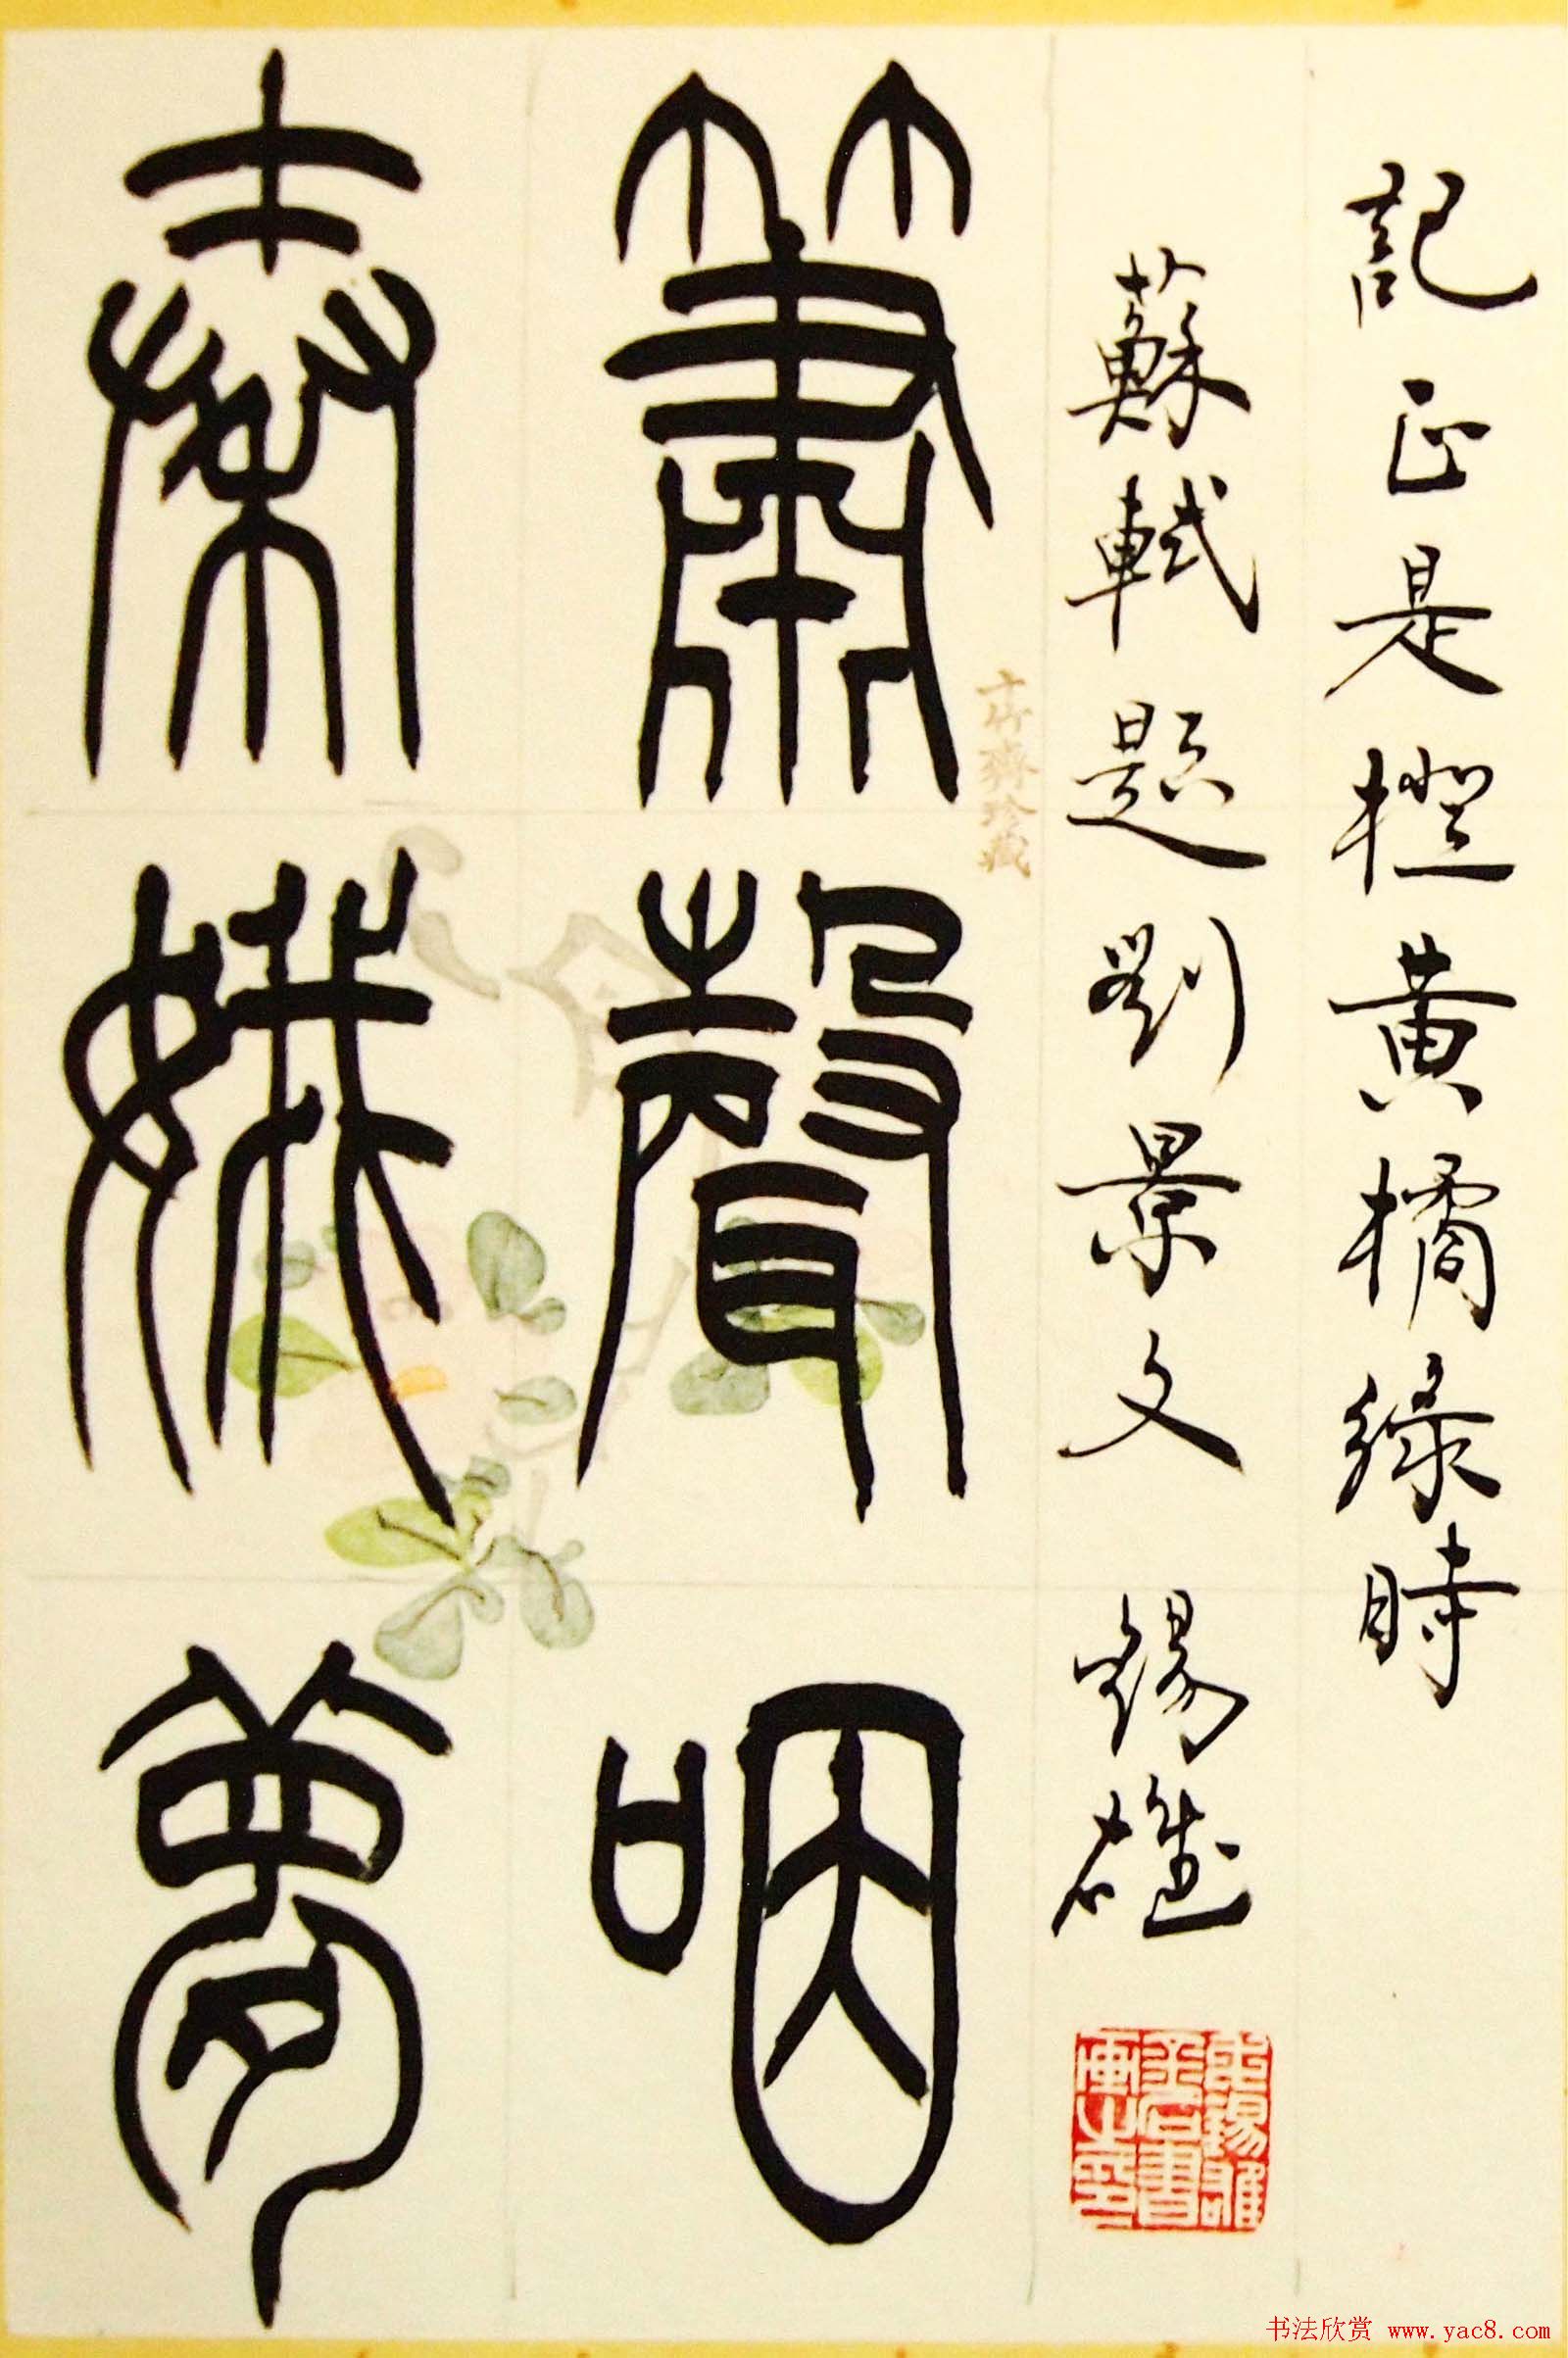 記正是橙黃橘綠時
蘇軾題劉景文 錫雄
十竹齋珍藏
簫聲咽
秦娥夢
书法欣赏 www.yac8.com